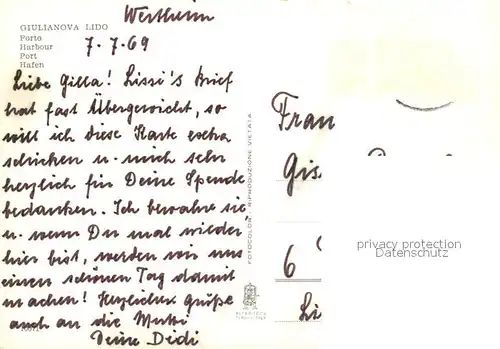 Wertheim
GIULIANOVA LIDO
Porto
Harbour
Port
Hafen
7.7.69
Liebe Gilla! Lissi's Brief
hat fast Übergewicht, so
will ich diese Karte extra
schicken u. mich sehr
herzlich für Deine Spende
bedanken. Ich bewahre sie
u. wenn Du mal wieder
hier bist, werden wir uns
einen schönen Tag damit
machen! Herzliche Grüße
auch an die Mutti
Deine Didi
FOTOCOLOR - RIPRODUZIONE VIETATA
Frau
Gis
6
Li
privacy protection
Datenschutz